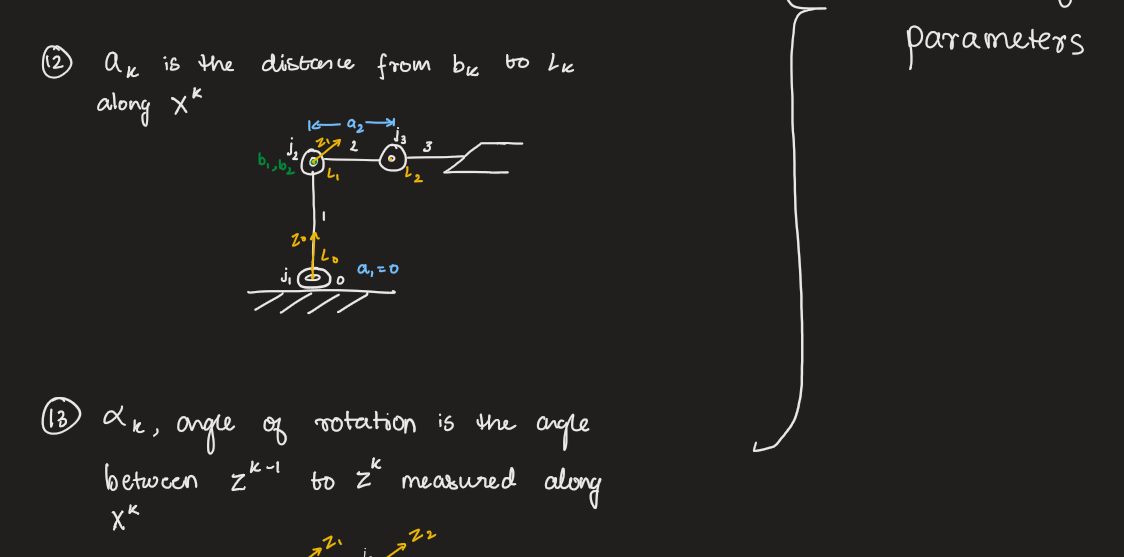 parameters
⑫ aₖ is the distance from bₖ to Lₖ
along Xᵏ
a₂
j₂ Z₁ 2 j₃ 3
b₁, b₂ L₁ L₂
1
Z₀
L₀
j₁ 0 a₁ = 0
⑬ αₖ, angle of rotation is the angle
between zᵏ⁻¹ to zᵏ measured along
Xᵏ
Z₁ Z₂